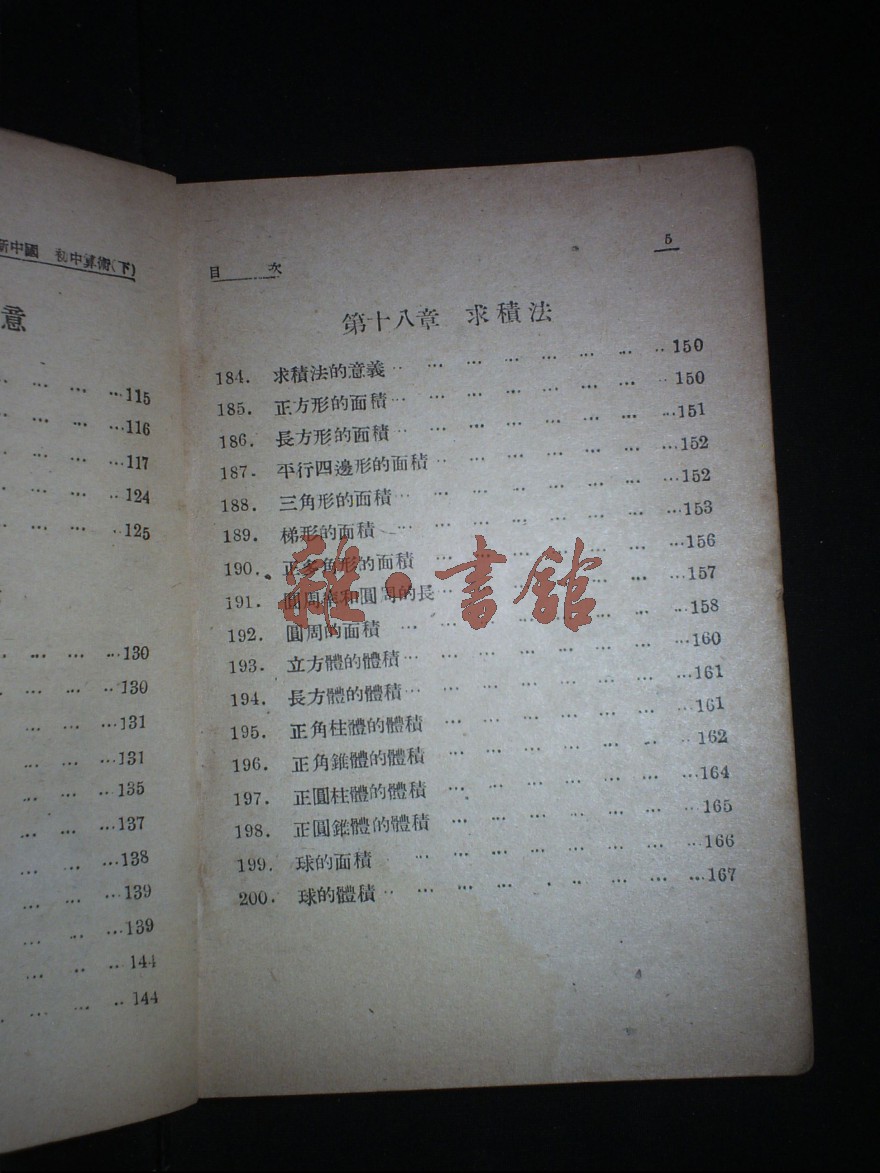 新中國 初中算術(下)
意
… … …115
… … …116
… … …117
… … …124
… … …125
… … …130
… … …130
… … …131
… … …131
… … …135
… … …137
… … …138
… … …139
… … …139
… … …144
… … …144
目 次 5
第十八章 求積法
184. 求積法的意義 … … … … … … … … 150
185. 正方形的面積 … … … … … … … … 150
186. 長方形的面積 … … … … … … … … 151
187. 平行四邊形的面積 … … … … … … … 152
188. 三角形的面積 … … … … … … … … 152
189. 梯形的面積 … … … … … … … … 153
190. 正多角形的面積 … … … … … … … 156
191. 圓周率和圓周的長 … … … … … … … 157
192. 圓周的面積 … … … … … … … … 158
193. 立方體的體積 … … … … … … … … 160
194. 長方體的體積 … … … … … … … … 161
195. 正角柱體的體積 … … … … … … … 161
196. 正角錐體的體積 … … … … … … … 162
197. 正圓柱體的體積 … … … … … … … 164
198. 正圓錐體的體積 … … … … … … … 165
199. 球的面積 … … … … … … … … 166
200. 球的體積 … … … … … … … … 167
雜·書館